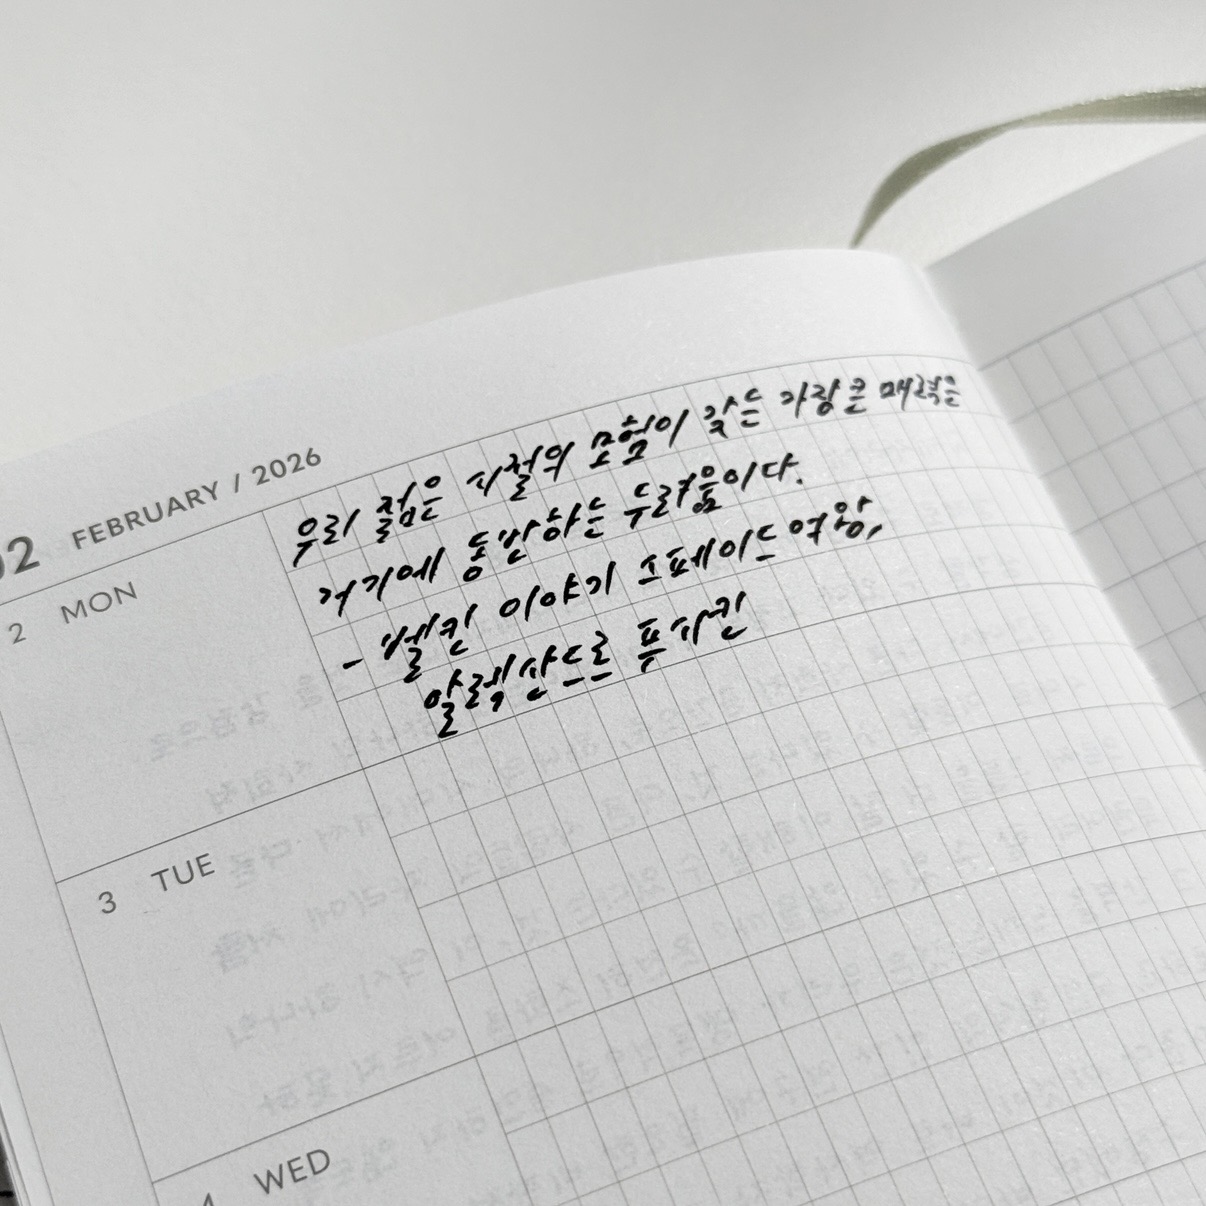 02 FEBRUARY / 2026
2 MON
우리 젊은 시절의 모험이 갖는 가장 큰 매력은
거기에 동반하는 두려움이다.
- 벨킨 이야기 스페이드 여왕,
알렉산드르 푸시킨
3 TUE
4 WED